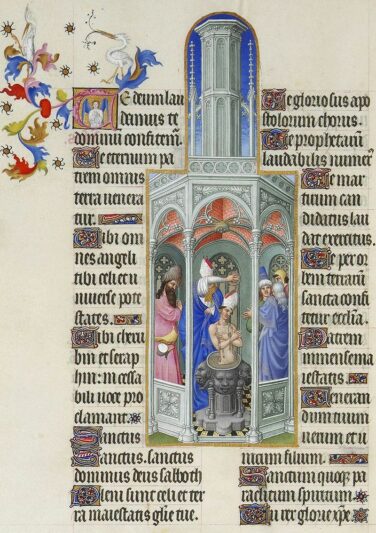 Te deum lau
damus te
dominũ confitem̃.
Te eternum pa
trem omnis
terra venera
tur.
Tibi om
nes angeli
tibi celi et
universe pote
states.
Tibi cheru
bin et serap
hin: incessa
bili voce pro
clamant.
Sanctus
Sanctus. sanctus
dominus deus sabaoth
Pleni sunt celi et ter
ra maiestatis glie tue.
Te gloriosus apo
stolorum chorus.
Te prophetarũ
laudabilis numer⁹
Te mar
tirum can
didatus lau
dat exercitus.
Te per or
bem terrarũ
sancta confi
tetur ecclia.
Patrem
immense ma
iestatis.
Veneran
dum tuum
verum et u
nicum filium.
Sanctum quoqꝫ pa
raclitum spiritum.
Tu rex glorie xpe.